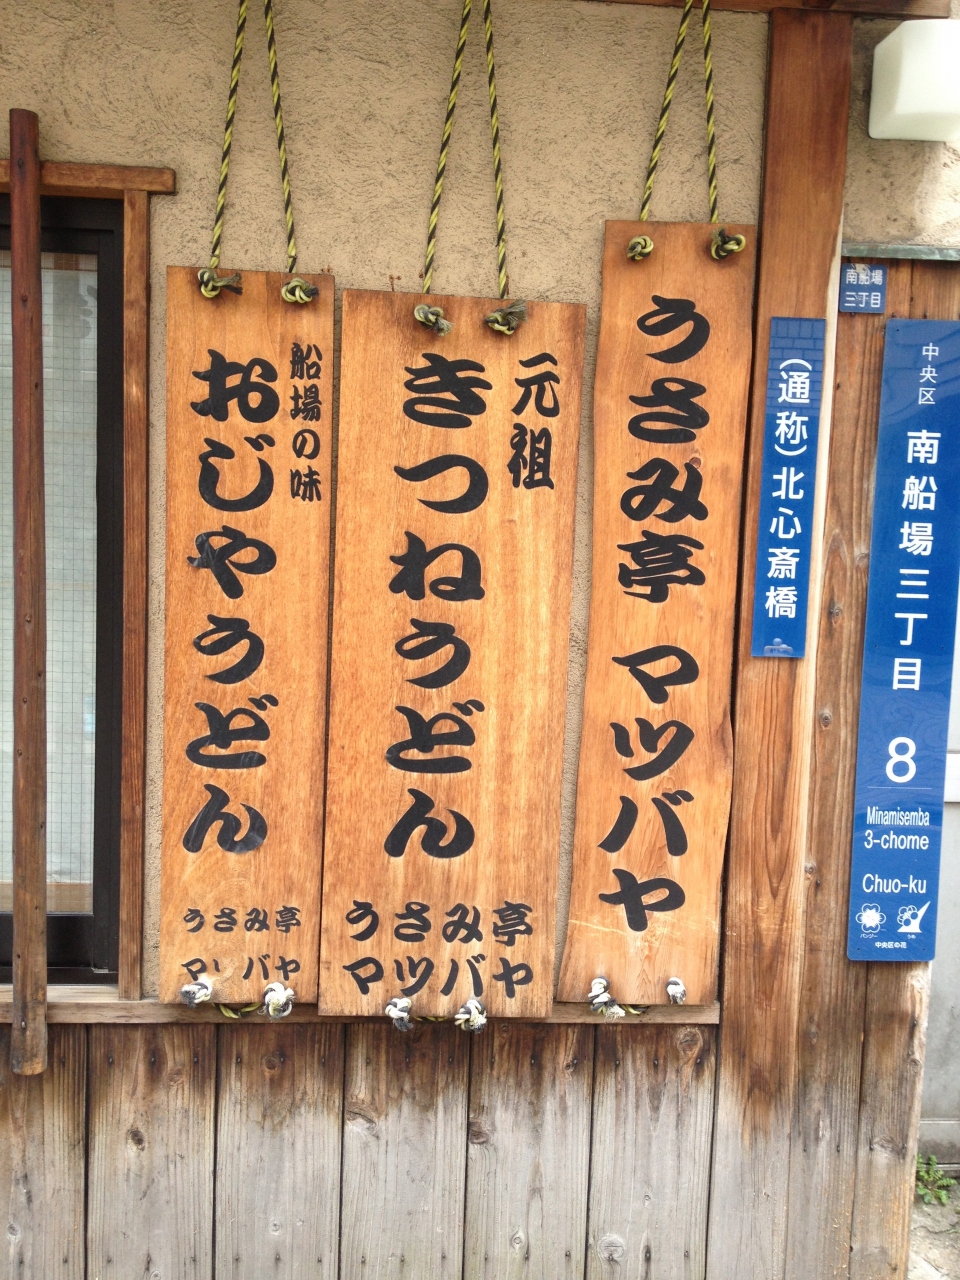 船場の味
おじやうどん
うさみ亭
マツバヤ
元祖
きつねうどん
うさみ亭
マツバヤ
うさみ亭 マツバヤ
(通称)北心斎橋
南船場
三丁目
中央区
南船場三丁目
8
Minamisemba
3-chome
Chuo-ku
パンジー
うめ
中央区の花